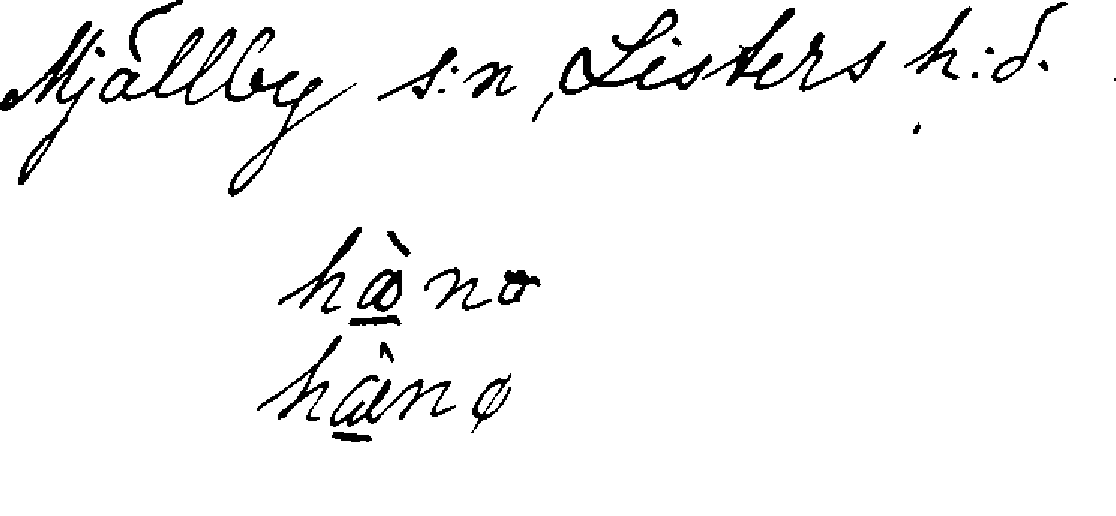 Mjällby s:n, Listers h:d.
hànø